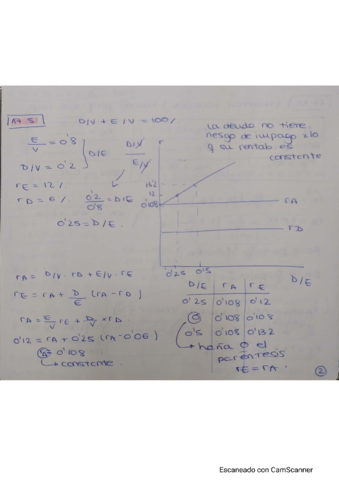 A4.5
D/V + E/V = 100%
E/V = 0'8
D/V = 0'2
D/E
D/V
E/V
rE = 12%
rD = 6%
0'2/0'8 = D/E
0'25 = D/E.
r
La deuda no tiene
riesgo de impago x lo
q su rentab. es
constante
13'2
12
0'108
rA
rD
0'25
0'5
D/E
rA = D/V · rD + E/V · rE
rE = rA + D/E (rA - rD)
rA = E/V rE + D/V x rD
0'12 = rA + 0'25 (rA - 0'06)
rA = 0'108
constante
D/E rA rE
0'25 0'108 0'12
0 0'108 0'108
0'5 0'108 0'132
haría 0 el
paréntesis
rE = rA.
2
Escaneado con CamScanner